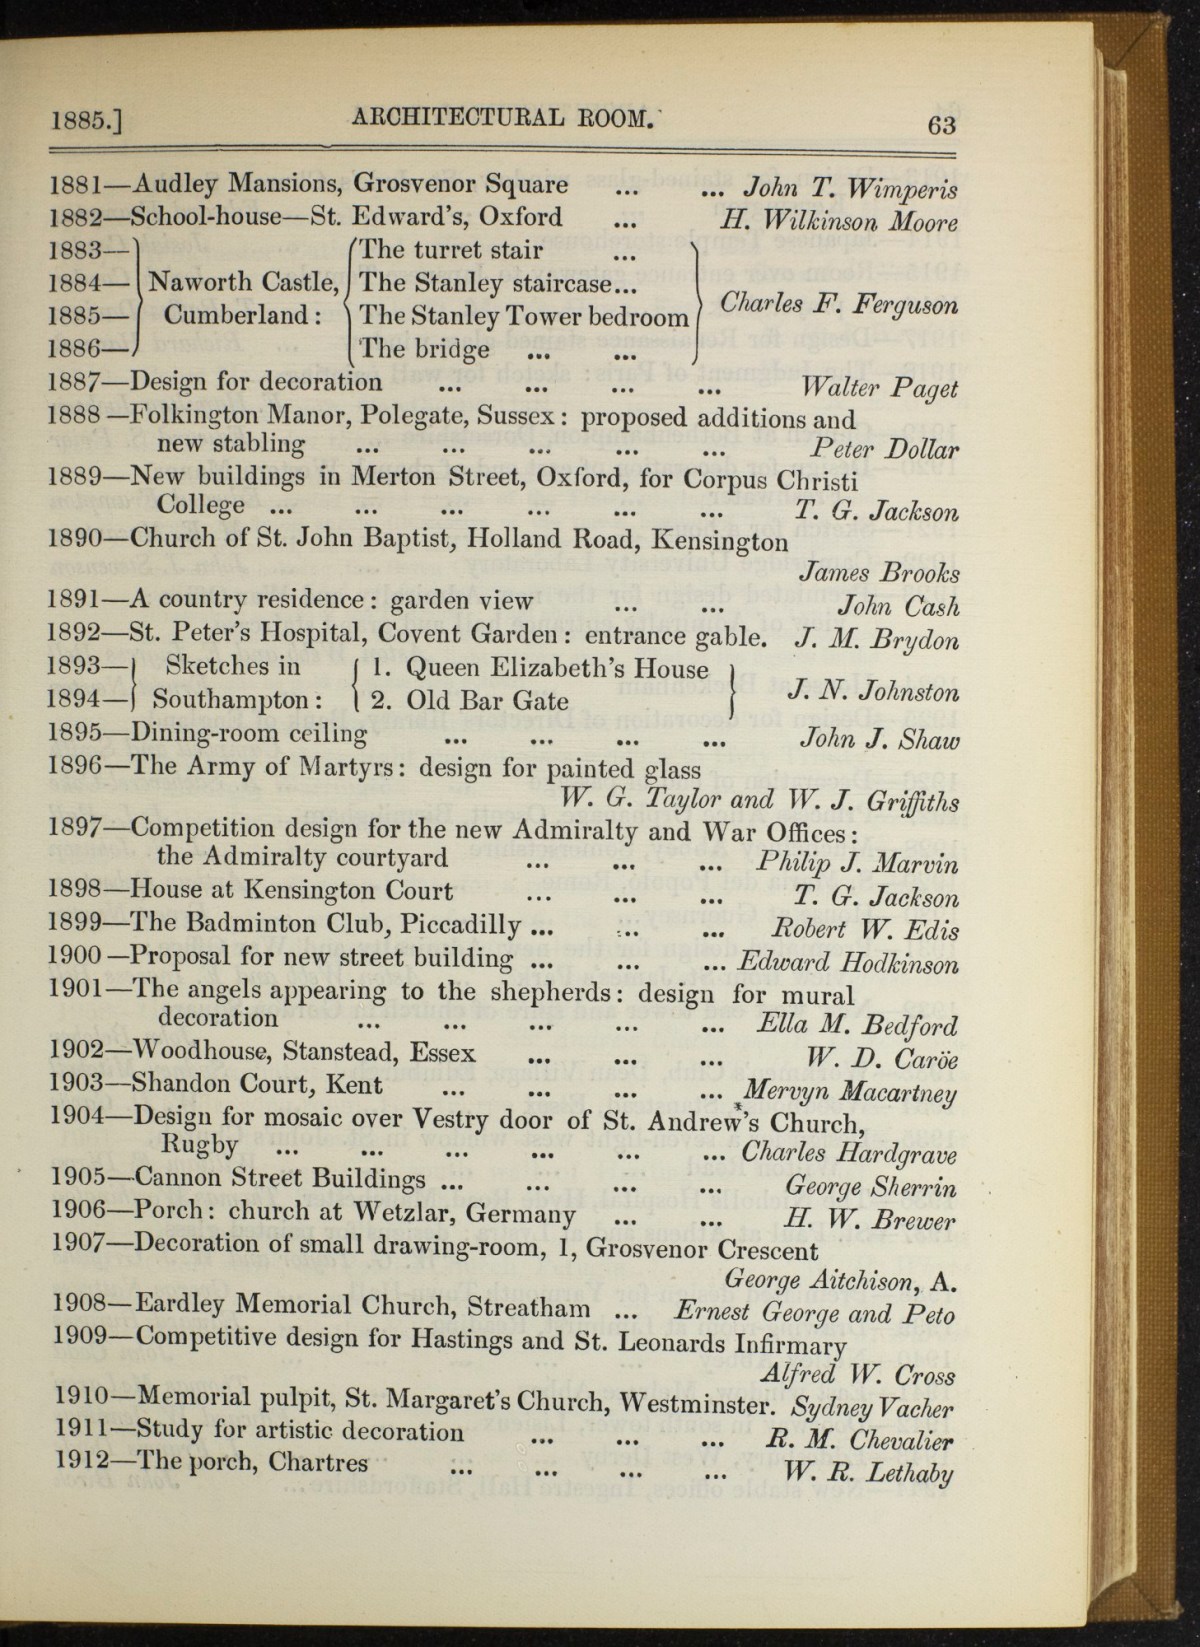 1885.] ARCHITECTURAL ROOM. 63
1881—Audley Mansions, Grosvenor Square ... ... John T. Wimperis
1882—School-house—St. Edward's, Oxford ... H. Wilkinson Moore
1883— The turret stair ...
1884— Naworth Castle, The Stanley staircase...
1885— Cumberland: The Stanley Tower bedroom Charles F. Ferguson
1886— The bridge ... ...
1887—Design for decoration ... ... ... ... Walter Paget
1888—Folkington Manor, Polegate, Sussex: proposed additions and
new stabling ... ... ... ... ... Peter Dollar
1889—New buildings in Merton Street, Oxford, for Corpus Christi
College ... ... ... ... ... ... T. G. Jackson
1890—Church of St. John Baptist, Holland Road, Kensington
James Brooks
1891—A country residence: garden view ... ... John Cash
1892—St. Peter's Hospital, Covent Garden: entrance gable. J. M. Brydon
1893— Sketches in 1. Queen Elizabeth's House
1894— Southampton: 2. Old Bar Gate J. N. Johnston
1895—Dining-room ceiling ... ... ... ... John J. Shaw
1896—The Army of Martyrs: design for painted glass
W. G. Taylor and W. J. Griffiths
1897—Competition design for the new Admiralty and War Offices:
the Admiralty courtyard ... ... ... Philip J. Marvin
1898—House at Kensington Court ... ... ... T. G. Jackson
1899—The Badminton Club, Piccadilly ... ... ... Robert W. Edis
1900—Proposal for new street building ... ... ... Edward Hodkinson
1901—The angels appearing to the shepherds: design for mural
decoration ... ... ... ... ... Ella M. Bedford
1902—Woodhouse, Stanstead, Essex ... ... ... W. D. Caröe
1903—Shandon Court, Kent ... ... ... ... Mervyn Macartney
1904—Design for mosaic over Vestry door of St. Andrew's Church,
Rugby ... ... ... ... ... ... Charles Hardgrave
1905—Cannon Street Buildings ... ... ... ... George Sherrin
1906—Porch: church at Wetzlar, Germany ... ... H. W. Brewer
1907—Decoration of small drawing-room, 1, Grosvenor Crescent
George Aitchison, A.
1908—Eardley Memorial Church, Streatham ... Ernest George and Peto
1909—Competitive design for Hastings and St. Leonards Infirmary
Alfred W. Cross
1910—Memorial pulpit, St. Margaret's Church, Westminster. Sydney Vacher
1911—Study for artistic decoration ... ... ... R. M. Chevalier
1912—The porch, Chartres ... ... ... ... W. R. Lethaby